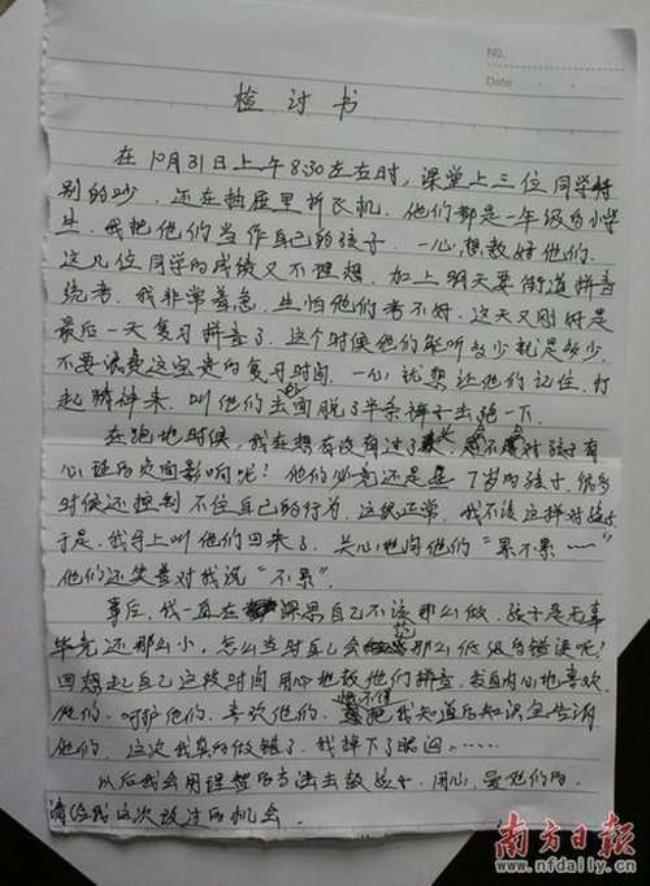 No.
Date
检讨书
在10月31日上午8:30左右时，课堂上三位同学特
别的吵，还在抽屉里折飞机，他们都是一年级的小学
生，我把他们当作自己的孩子，一心想教好他们，
这几位同学的成绩又不理想，加上明天要街道拼音
统考，我非常着急，生怕他们考不好，这天又刚好是
最后一天复习拼音了，这个时候他们能听多少就是多少，
不要浪费这宝贵的复习时间，一心就想让他们记住，打
起精神来，叫他们去外面脱了半条裤子去跑一下，
在跑地时候，我在想有没有过了头，会不会对孩子有
心理的负面影响呢！他们必竟还是是7岁的孩子，很多
时候还控制不住自己的行为，这很正常，我不该这样对孩子
于是，我马上叫他们回来了，关心地问他们“累不累……”
他们还笑着对我说“不累”.
事后，我一直在深思自己不该那么做，孩子是无辜
毕竟还那么小，怎么当时自己会犯那么低级的错误呢？
回想起自己这段时间用心地教他们拼音，发自内心地喜欢
他们，呵护他们，喜欢他们，恨不得把我知道的知识全告诉
他们，这次我真的做错了，我掉下了眼泪……
以后我会用理智的方法去教孩子，用心，爱他们的.
请给我这次改过的机会.
南方日报
www.nfdaily.cn